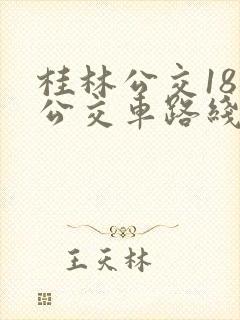 桂林公交18
公交车路线
王天林